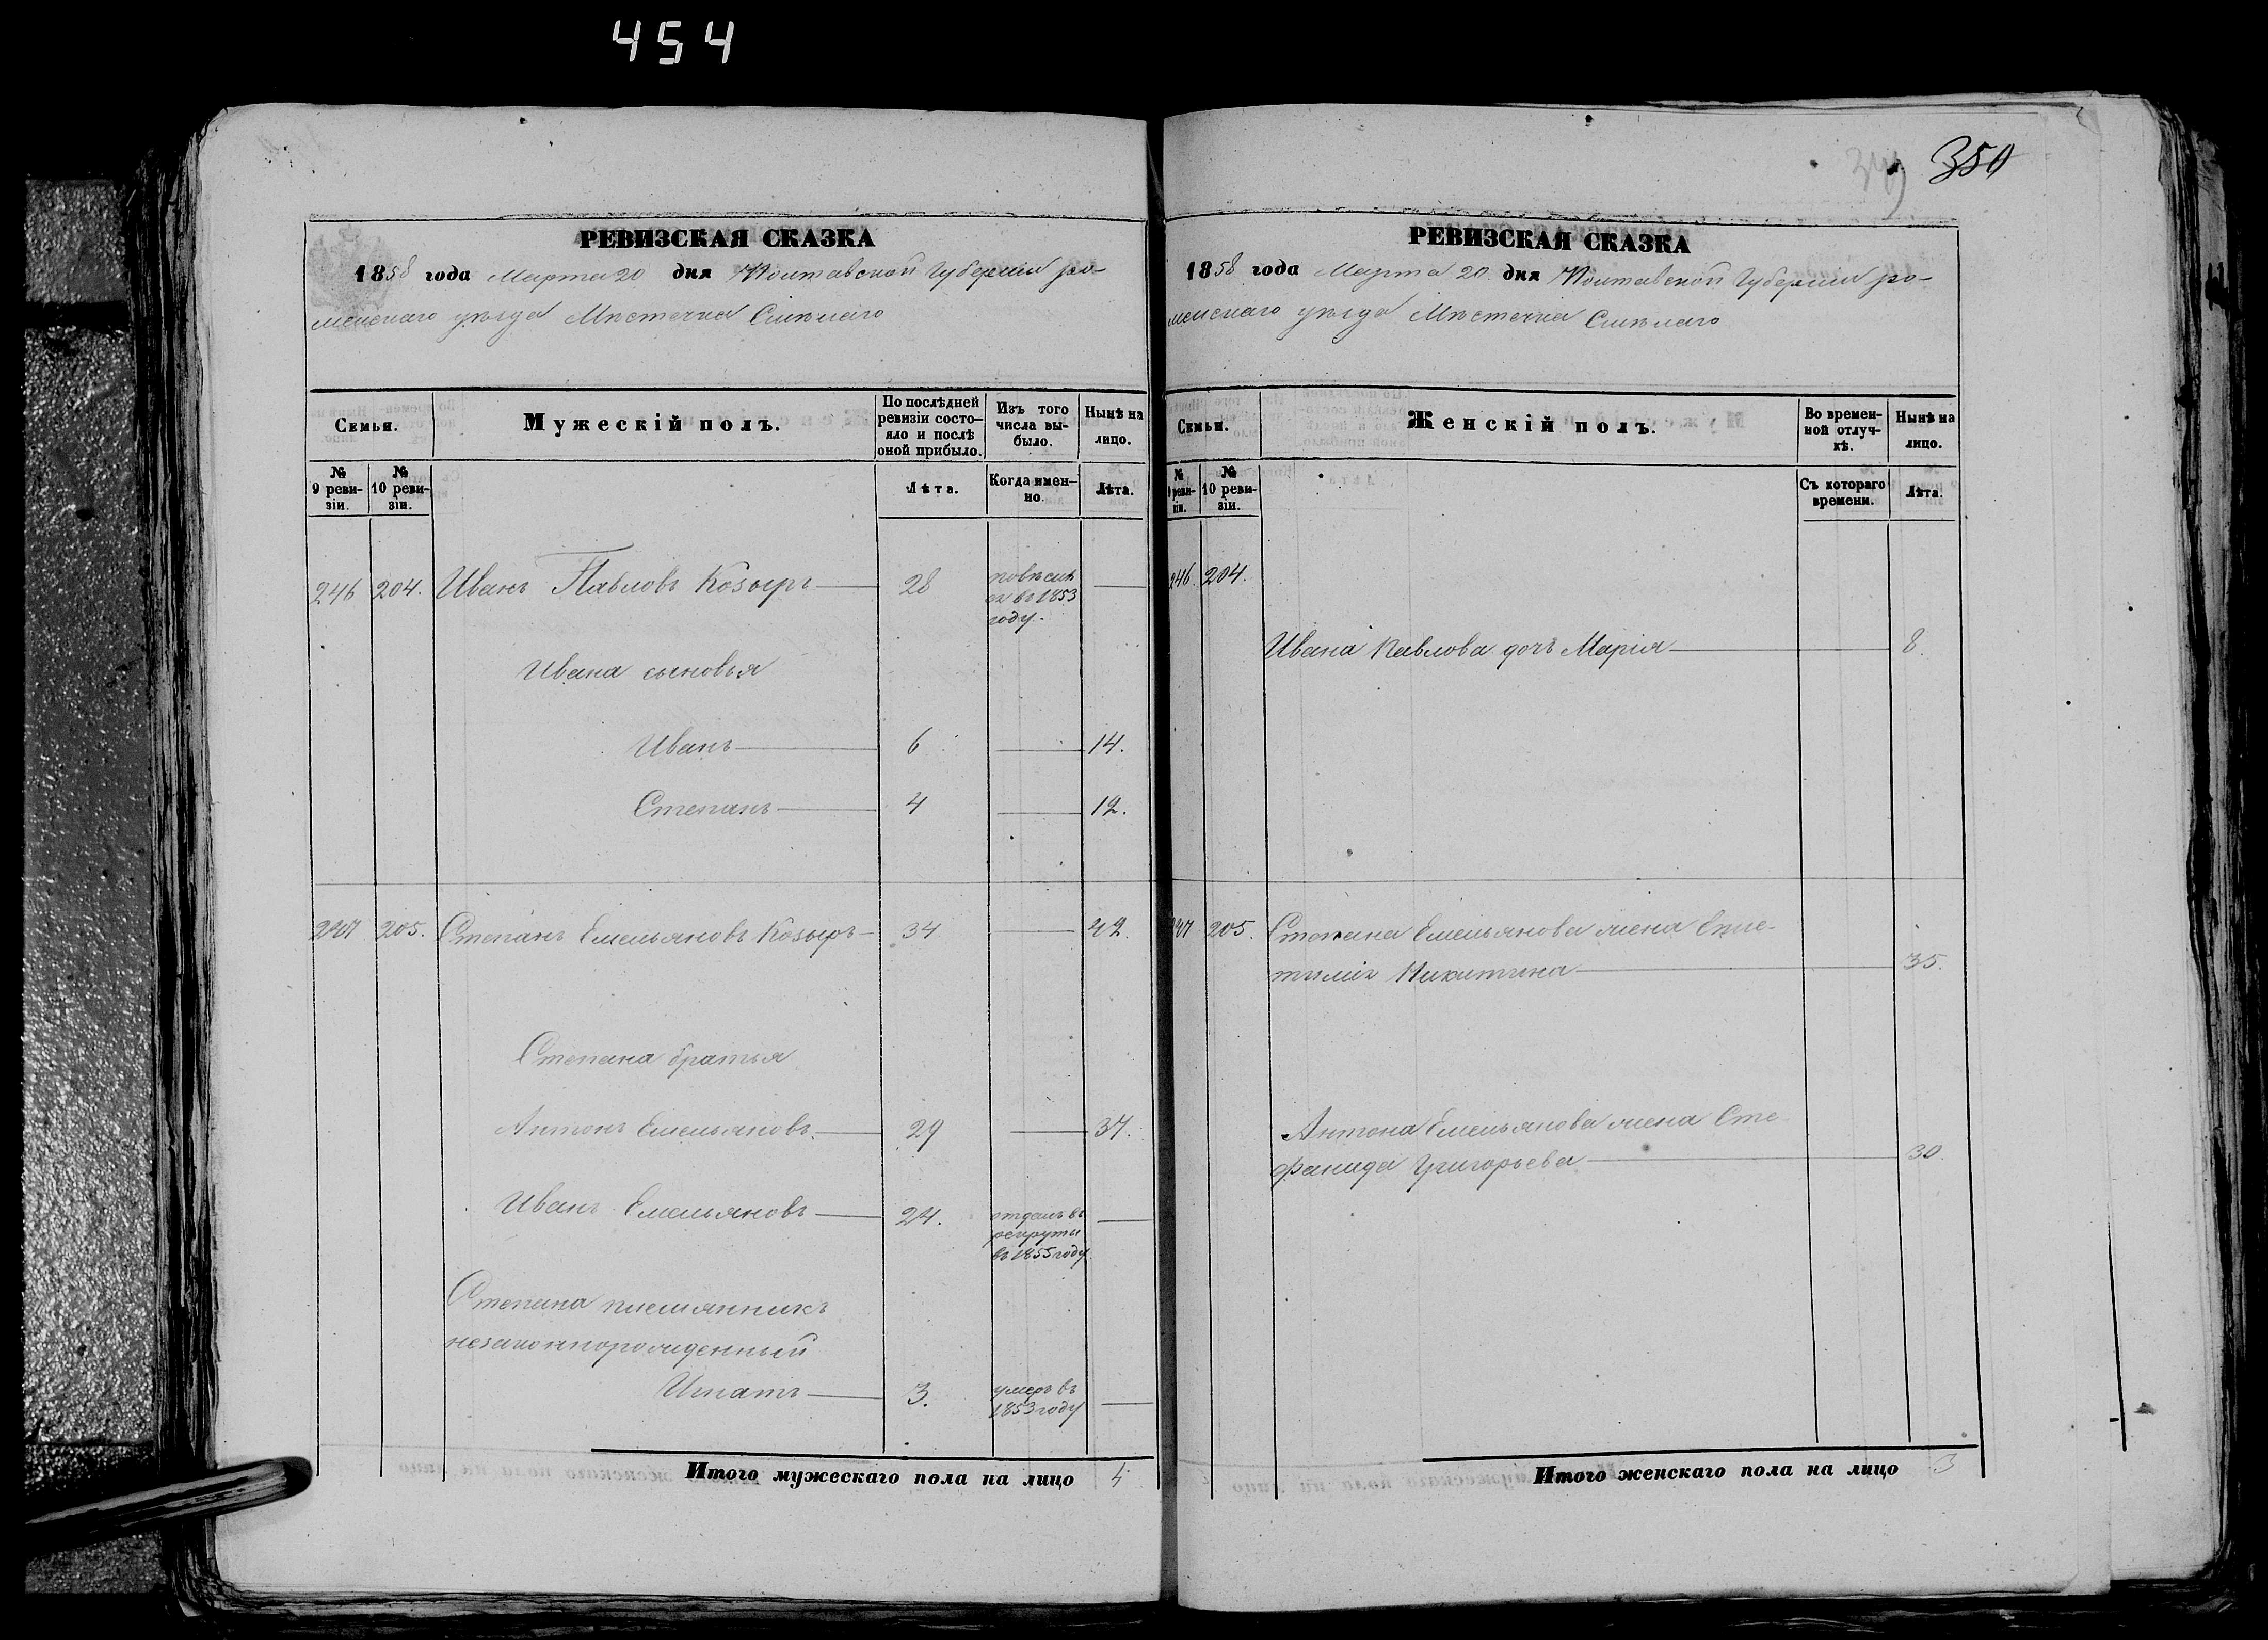 454
350
РЕВИЗСКАЯ СКАЗКА
1858 года Марта 20 дня Полтавской Губерніи ро-
менскаго уѣзда Мѣстечка Смѣлаго
Семьи.
Мужескій полъ.
По послѣдней ревизіи состо-
яло и послѣ оной прибыло.
Изъ того числа вы-
было.
Нынѣ на лицо.
№ 9 реви-
зіи.
№ 10 реви-
зіи.
Лѣта.
Когда имен-
но.
Лѣта.
246 204. Иванъ Павловъ Козыръ 28
повѣсил
ся въ 1853
году.
Ивана сыновья
Иванъ 6 14.
Степанъ 4 12.
247 205. Степанъ Емельяновъ Козыръ 34 42.
Степана братья
Антонъ Емельяновъ 29 37.
Иванъ Емельяновъ 24.
отданъ въ
рекруты
въ 1855 году.
Степана племянникъ
незаконнорожденный
Игнатъ 3.
умеръ въ
1853 году
Итого мужескаго пола на лицо 4
РЕВИЗСКАЯ СКАЗКА
1858 года Марта 20 дня Полтавской Губерніи ро-
менскаго уѣзда Мѣстечка Смѣлаго
Семьи.
Женскій полъ.
Во времен-
ной отлуч-
кѣ.
Нынѣ на лицо.
№ 9 реви-
зіи.
№ 10 реви-
зіи.
Съ котораго времени.
Лѣта.
246. 204.
Ивана Павлова дочь Марія 8.
247 205. Степана Емельянова жена
Никитина 35.
Антона Емельянова жена Сте-
фанида Григорьева 30.
Итого женскаго пола на лицо 3